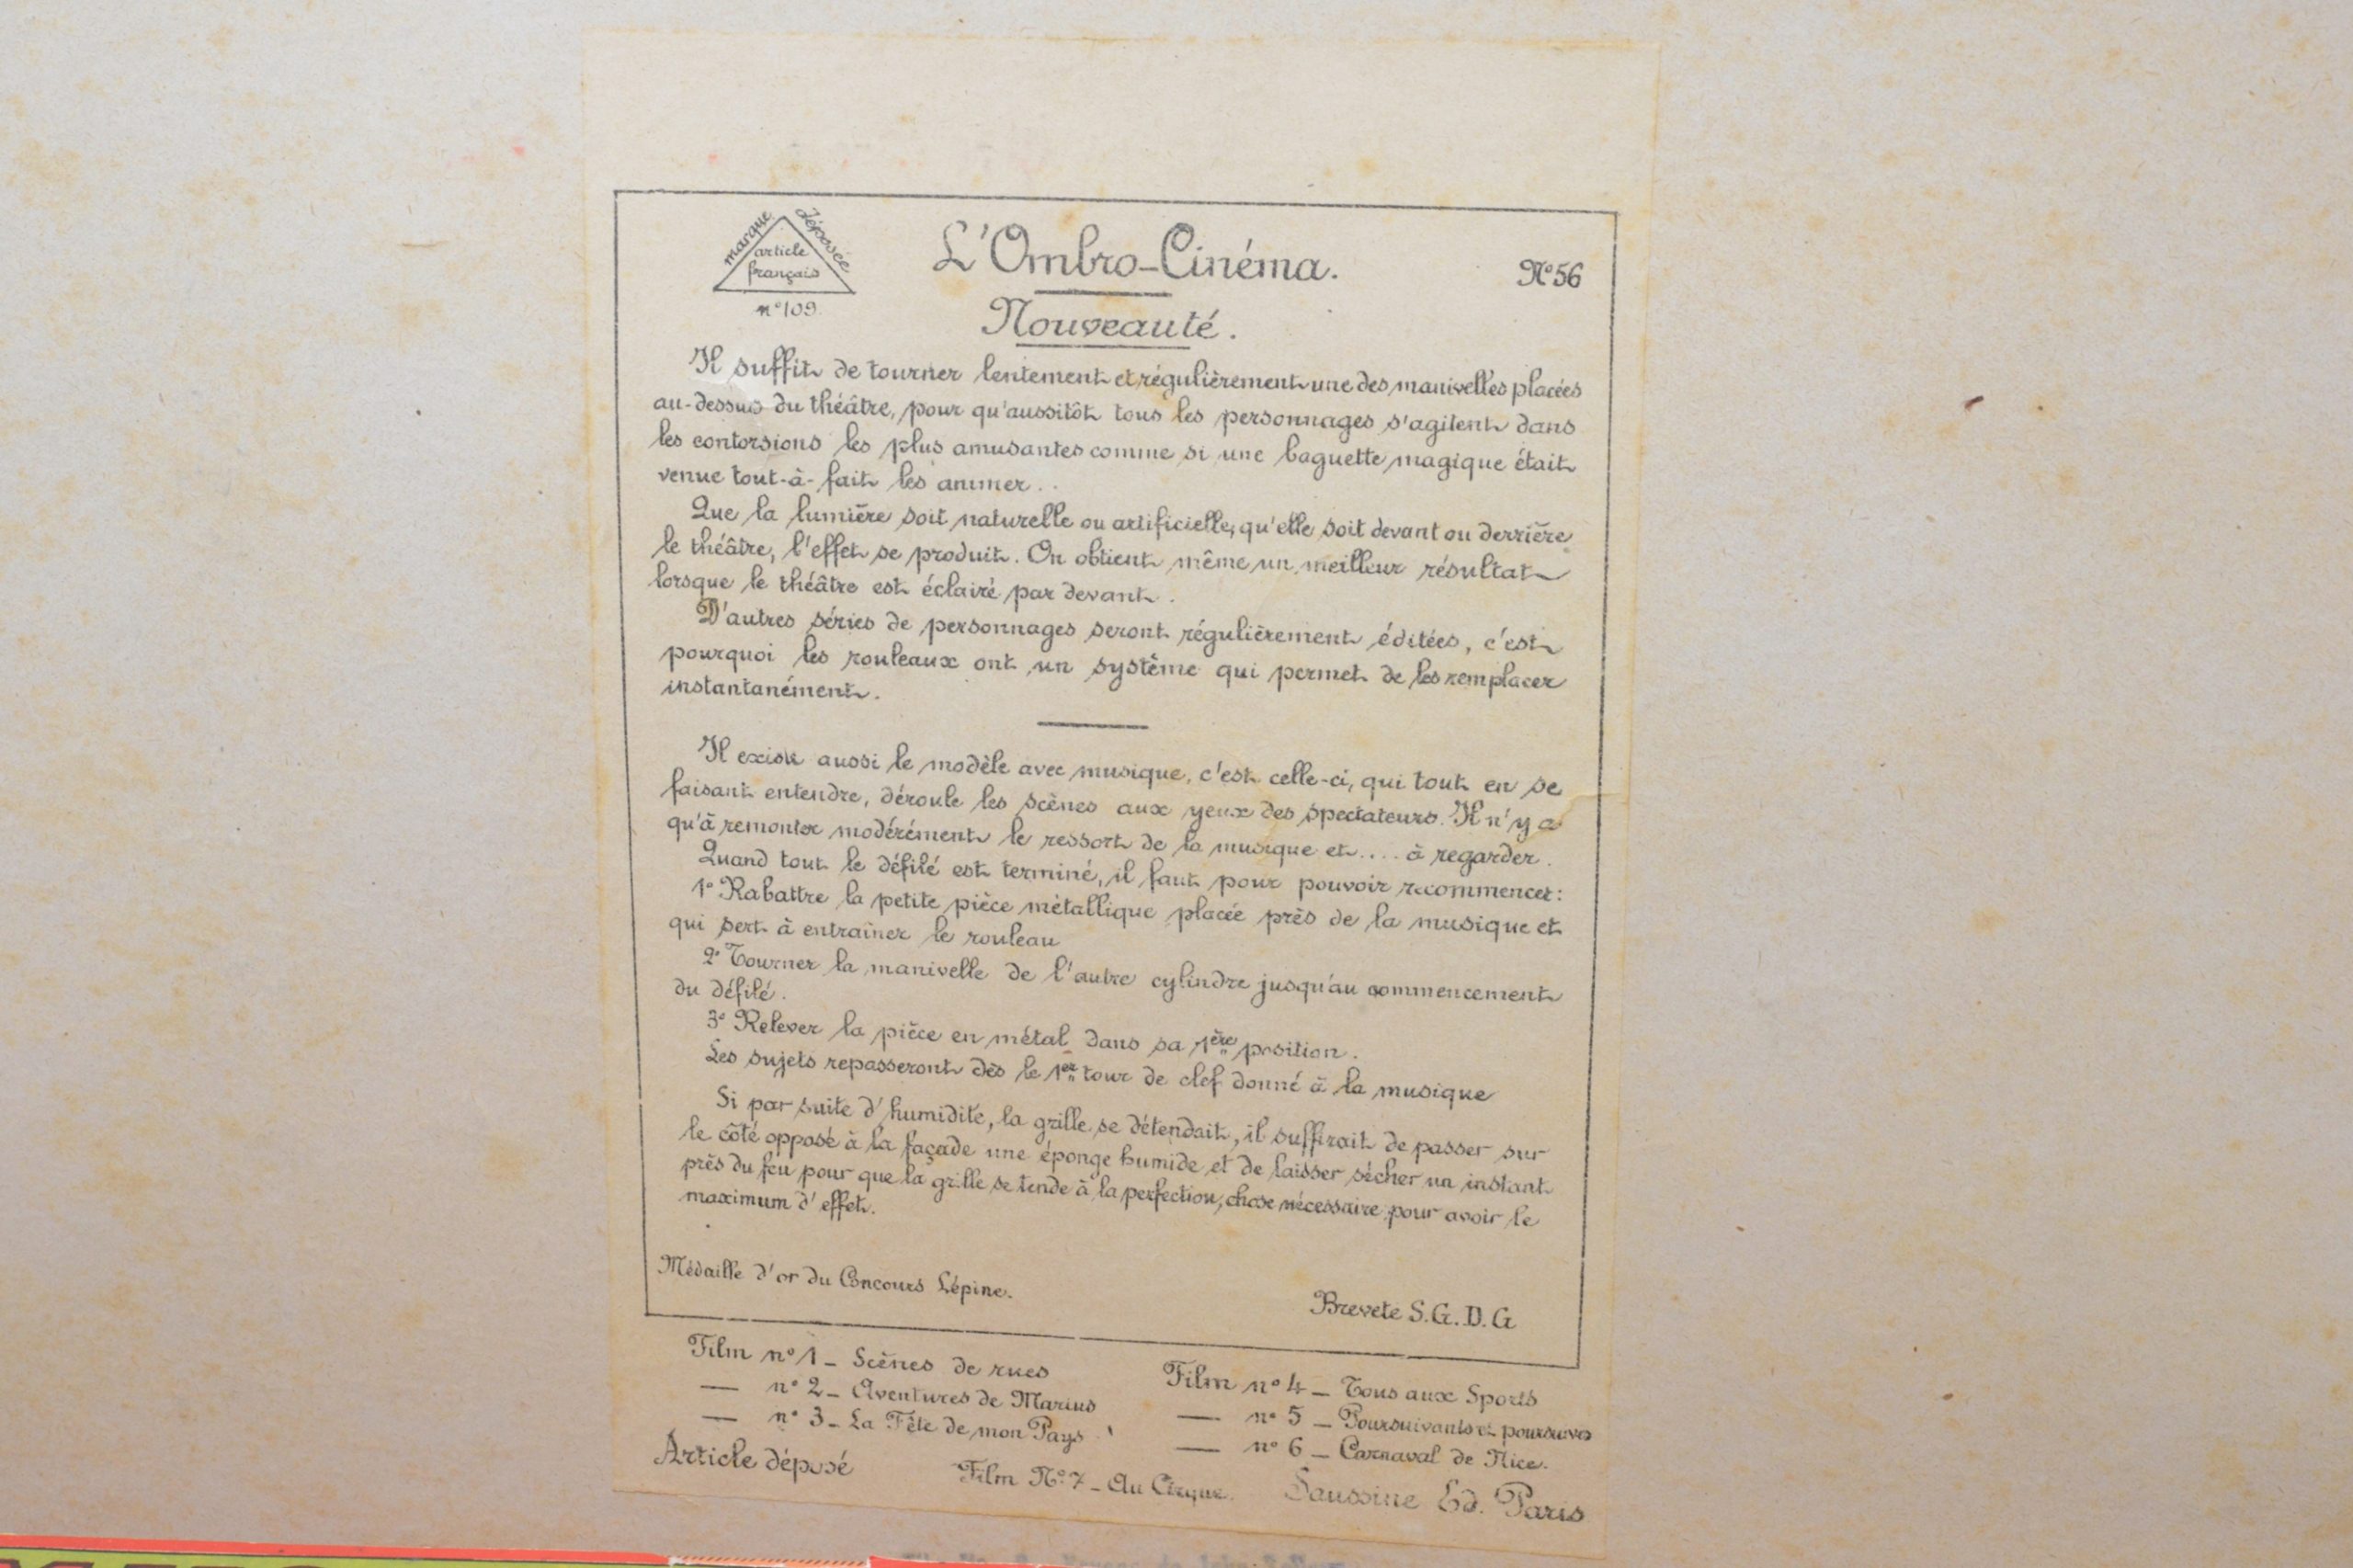 marque déposée
article
français
n° 109
L'Ombro-Cinéma.
N° 56
Nouveauté.
Il suffit de tourner lentement et régulièrement une des manivelles placées
au-dessus du théâtre, pour qu'aussitôt tous les personnages s'agitent dans
les contorsions les plus amusantes comme si une baguette magique était
venue tout-à-fait les animer..
Que la lumière soit naturelle ou artificielle, qu'elle soit devant ou derrière
le théâtre, l'effet se produit. On obtient même un meilleur résultat
lorsque le théâtre est éclairé par devant.
D'autres séries de personnages seront régulièrement éditées, c'est
pourquoi les rouleaux ont un système qui permet de les remplacer
instantanément.
Il existe aussi le modèle avec musique, c'est celle-ci, qui tout en se
faisant entendre, déroule les scènes aux yeux des spectateurs. Il n'y a
qu'à remonter modérément le ressort de la musique et.... à regarder.
Quand tout le défilé est terminé, il faut pour pouvoir recommencer:
1° Rabattre la petite pièce métallique placée près de la musique et
qui sert à entraîner le rouleau
2° Tourner la manivelle de l'autre cylindre jusqu'au commencement
du défilé.
3° Relever la pièce en métal dans sa 1ère position.
Les sujets repasseront dès le 1er tour de clef donné à la musique
Si par suite d'humidité, la grille se détendait, il suffirait de passer sur
le côté opposé à la façade une éponge humide et de laisser sécher un instant
près du feu pour que la grille se tende à la perfection, chose nécessaire pour avoir le
maximum d'effet.
Médaille d'or du Concours Lépine.
Breveté S.G.D.G
Film n° 1 - Scènes de rues
— n° 2 - Aventures de Marius
— n° 3 - La Fête de mon Pays
Film n° 4 - Tous aux Sports
— n° 5 - Poursuivants et poursuivis
— n° 6 - Carnaval de Nice.
Article déposé
Film N° 7 - Au Cirque.
Saussine Ed. Paris